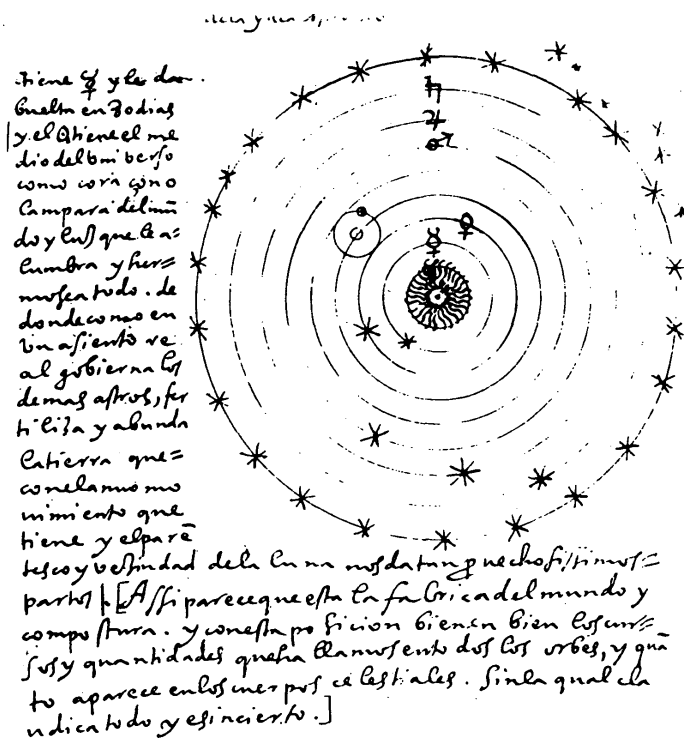 tiene ☿ y le da
buelta en 80 dias
y el ☉ tiene el me
dio del bniberso
como coraçon o
lampara del mũ
do y luz que le a=
lumbra y her=
mosea todo. de
donde como en
vn asiento re
al gobierna los
demas astros, fer
tiliza y abunda
la tierra que=
con el anuo mo
uimiento que
tiene y el parẽ
tesco y vezindad de la luna nos da tan
partos. [Assi parece que esta la fabrica del mundo y
compostura. y con esta posicion bienen bien los cur=
sos y quantidades que hallamos en todos los orbes, y quã
to aparece en los cuerpos celestiales. sin la qual cla
udica todo y es incierto.]